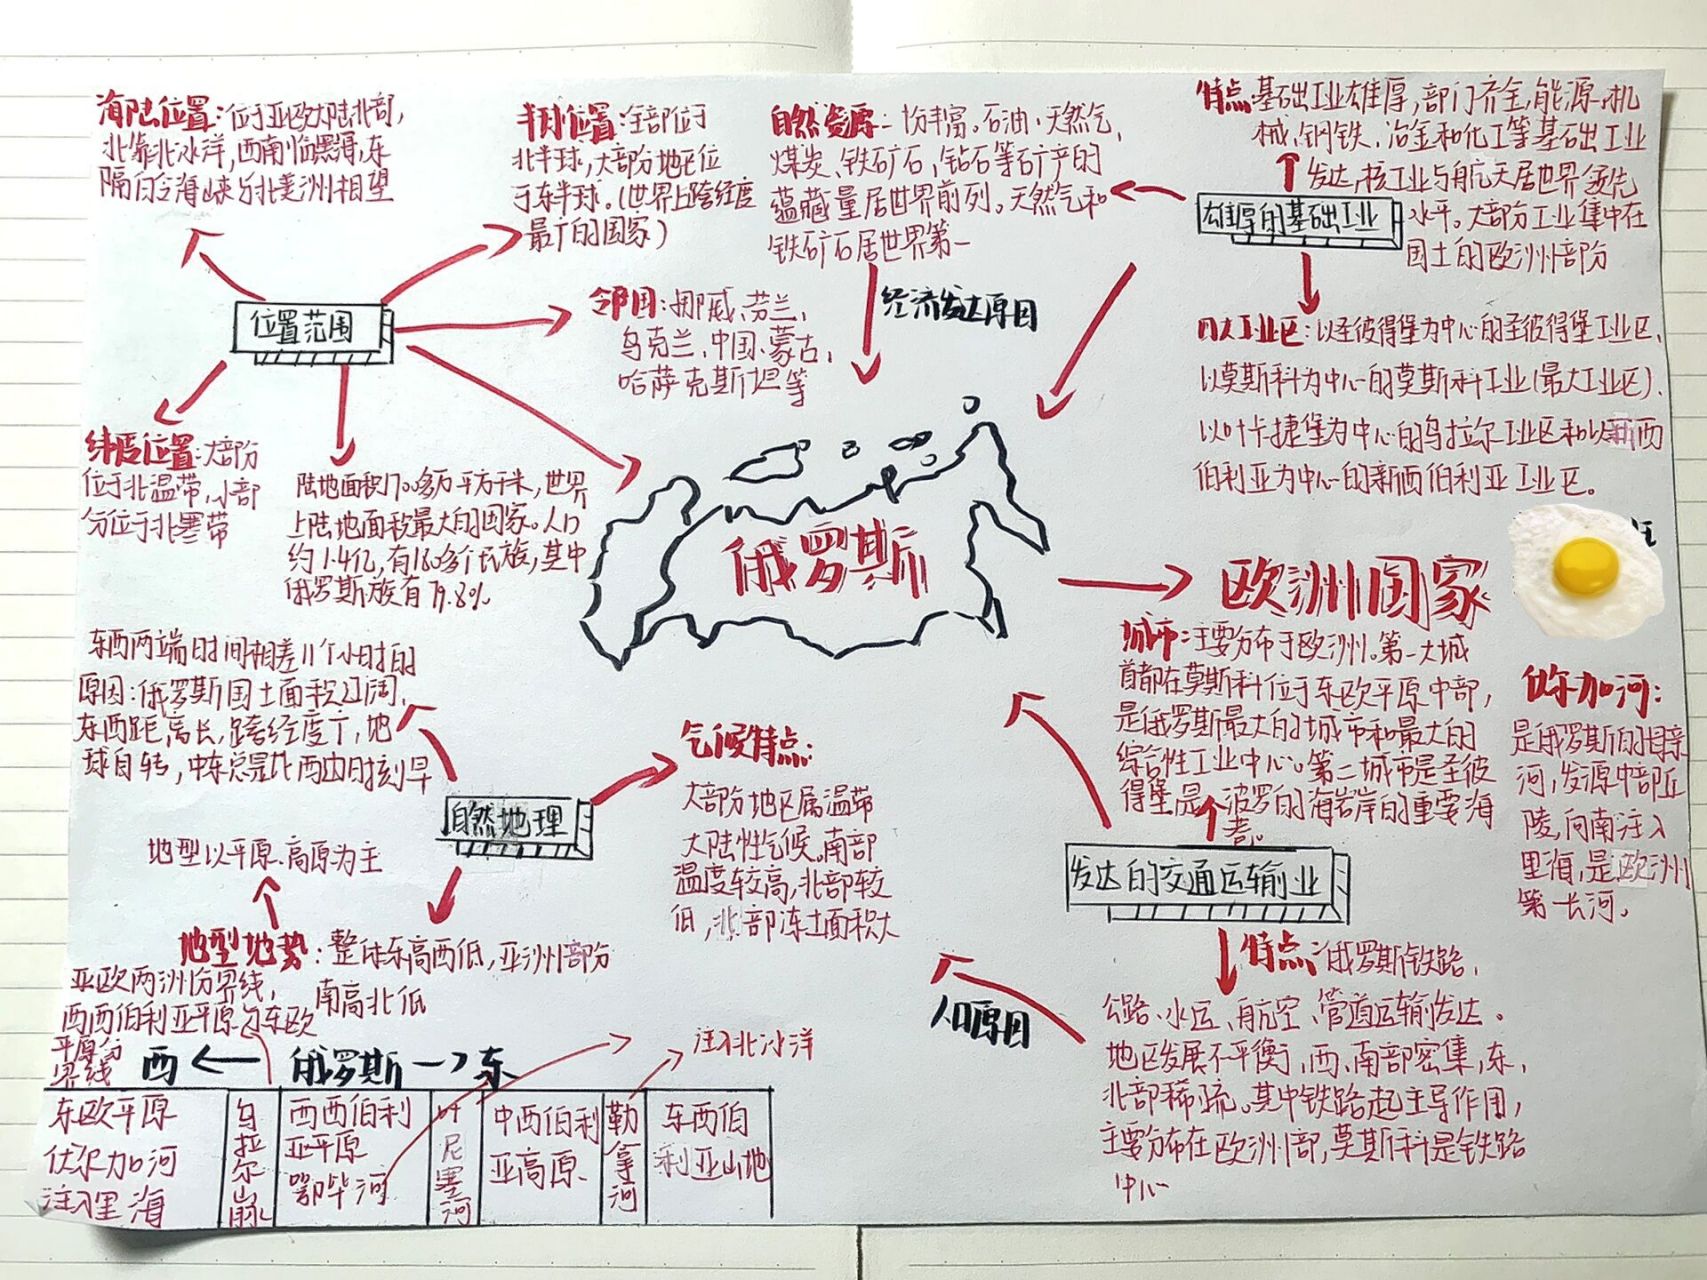 海陆位置:位于亚欧大陆北部,
北靠北冰洋,西南临黑海,东
隔白令海峡与北美洲相望
半球位置:全部位于
北半球,大部分地区位
于东半球.(世界上跨经度
最广的国家)
自然资源:
丰富.石油、天然气,
煤炭、铁矿石,钻石等矿产的
蕴藏量居世界前列,天然气和
铁矿石居世界第一
特点:基础工业雄厚,部门齐全,能源、机
械、钢铁、冶金和化工等基础工业
发达,核工业与航天居世界领先
水平。大部分工业集中在
国土的欧洲部分
雄厚的基础工业
位置范围
邻国:挪威、芬兰,
乌克兰、中国、蒙古,
哈萨克斯坦等
经济发达原因
四大工业区:以圣彼得堡为中心的圣彼得堡工业区,
以莫斯科为中心的莫斯科工业(最大工业区).
以叶卡捷堡为中心的乌拉尔工业区和以新西
伯利亚为中心的新西伯利亚工业区。
纬度位置:大部分
位于北温带,小部
分位于北寒带
陆地面积1700多万平方千米,世界
上陆地面积最大的国家。人口
约1.4亿,有180多个民族,其中
俄罗斯族有79.8%
俄罗斯
欧洲国家
东西两端时间相差11个小时的
原因:俄罗斯国土面积辽阔,
东西距离长,跨经度广,地
球自转,中东总是比西边时刻早
城市:主要分布于欧洲。第一大城
首都在莫斯科位于东欧平原中部,
是俄罗斯最大的城市和最大的
综合性工业中心。第二城市是圣彼
得堡是波罗的海沿岸的重要海
伏尔加河:
是俄罗斯的母亲
河,发源中部丘
陵,向南注入
里海,是欧洲
第一长河。
气候特点:
大部分地区属温带
大陆性气候,南部
温度较高,北部较
低,北部冻土面积大
自然地理
地型以平原、高原为主
发达的交通运输业
地型地势:整体东高西低,亚洲部分
南高北低
亚欧两洲分界线,
西西伯利亚平原与东欧
平原分
界线
特点:俄罗斯铁路,
公路、水运、航空、管道运输发达。
地区发展不平衡,西、南部密集,东,
北部稀疏。其中铁路起主导作用,
主要分布在欧洲部,莫斯科是铁路
中心
人口原因
注入北冰洋
西 ← 俄罗斯 → 东
东欧平原
伏尔加河
注入里海
乌拉尔山脉
西西伯利
亚平原
鄂毕河
叶尼塞河
中西伯利
亚高原
勒拿河
东西伯
利亚山地